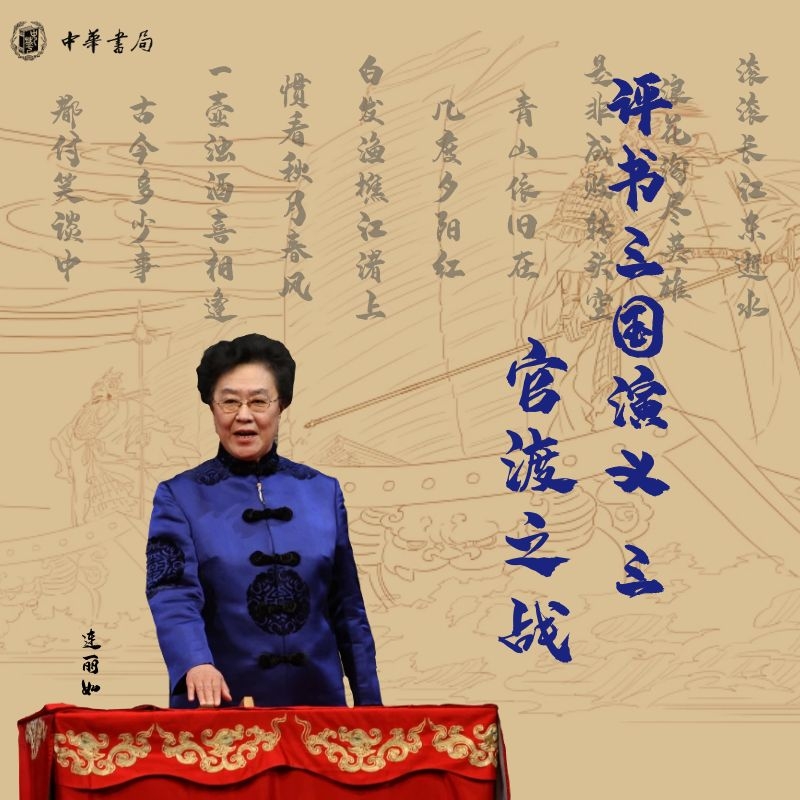 中華書局
评书三国演义 三
官渡之战
滚滚长江东逝水
浪花淘尽英雄
是非成败转头空
青山依旧在
几度夕阳红
白发渔樵江渚上
惯看秋月春风
一壶浊酒喜相逢
古今多少事
都付笑谈中
连丽如